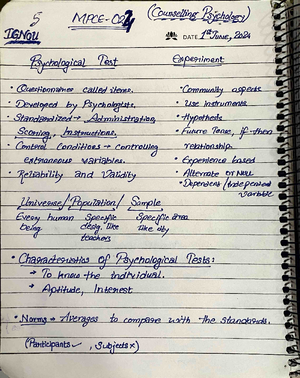 5
MPCE-024
(Counselling Psychology)
IGNOU
DATE 1st June, 2024
Psychological Test
Experiment
• Questionnaires called items.
• Developed by Psychologists.
• Standardized → Administration, Scoring, Instructions.
• Control Conditions → controlling extraneous variables.
• Reliability and Validity
• Community aspects
• Use Instruments
• Hypothesis
• Future Tense, if-then relationship.
• Experience based
• Alternate or Null
• Dependent / Independent variable
Universe/Population/ Sample
Every human being
Specific desig. like teachers
Specific area like city
• Characteristics of Psychological Tests:
→ To know the individual.
→ Aptitude, Interest
• Norms → Averages to compare with the standards.
(Participants ✓, Subjects ×)